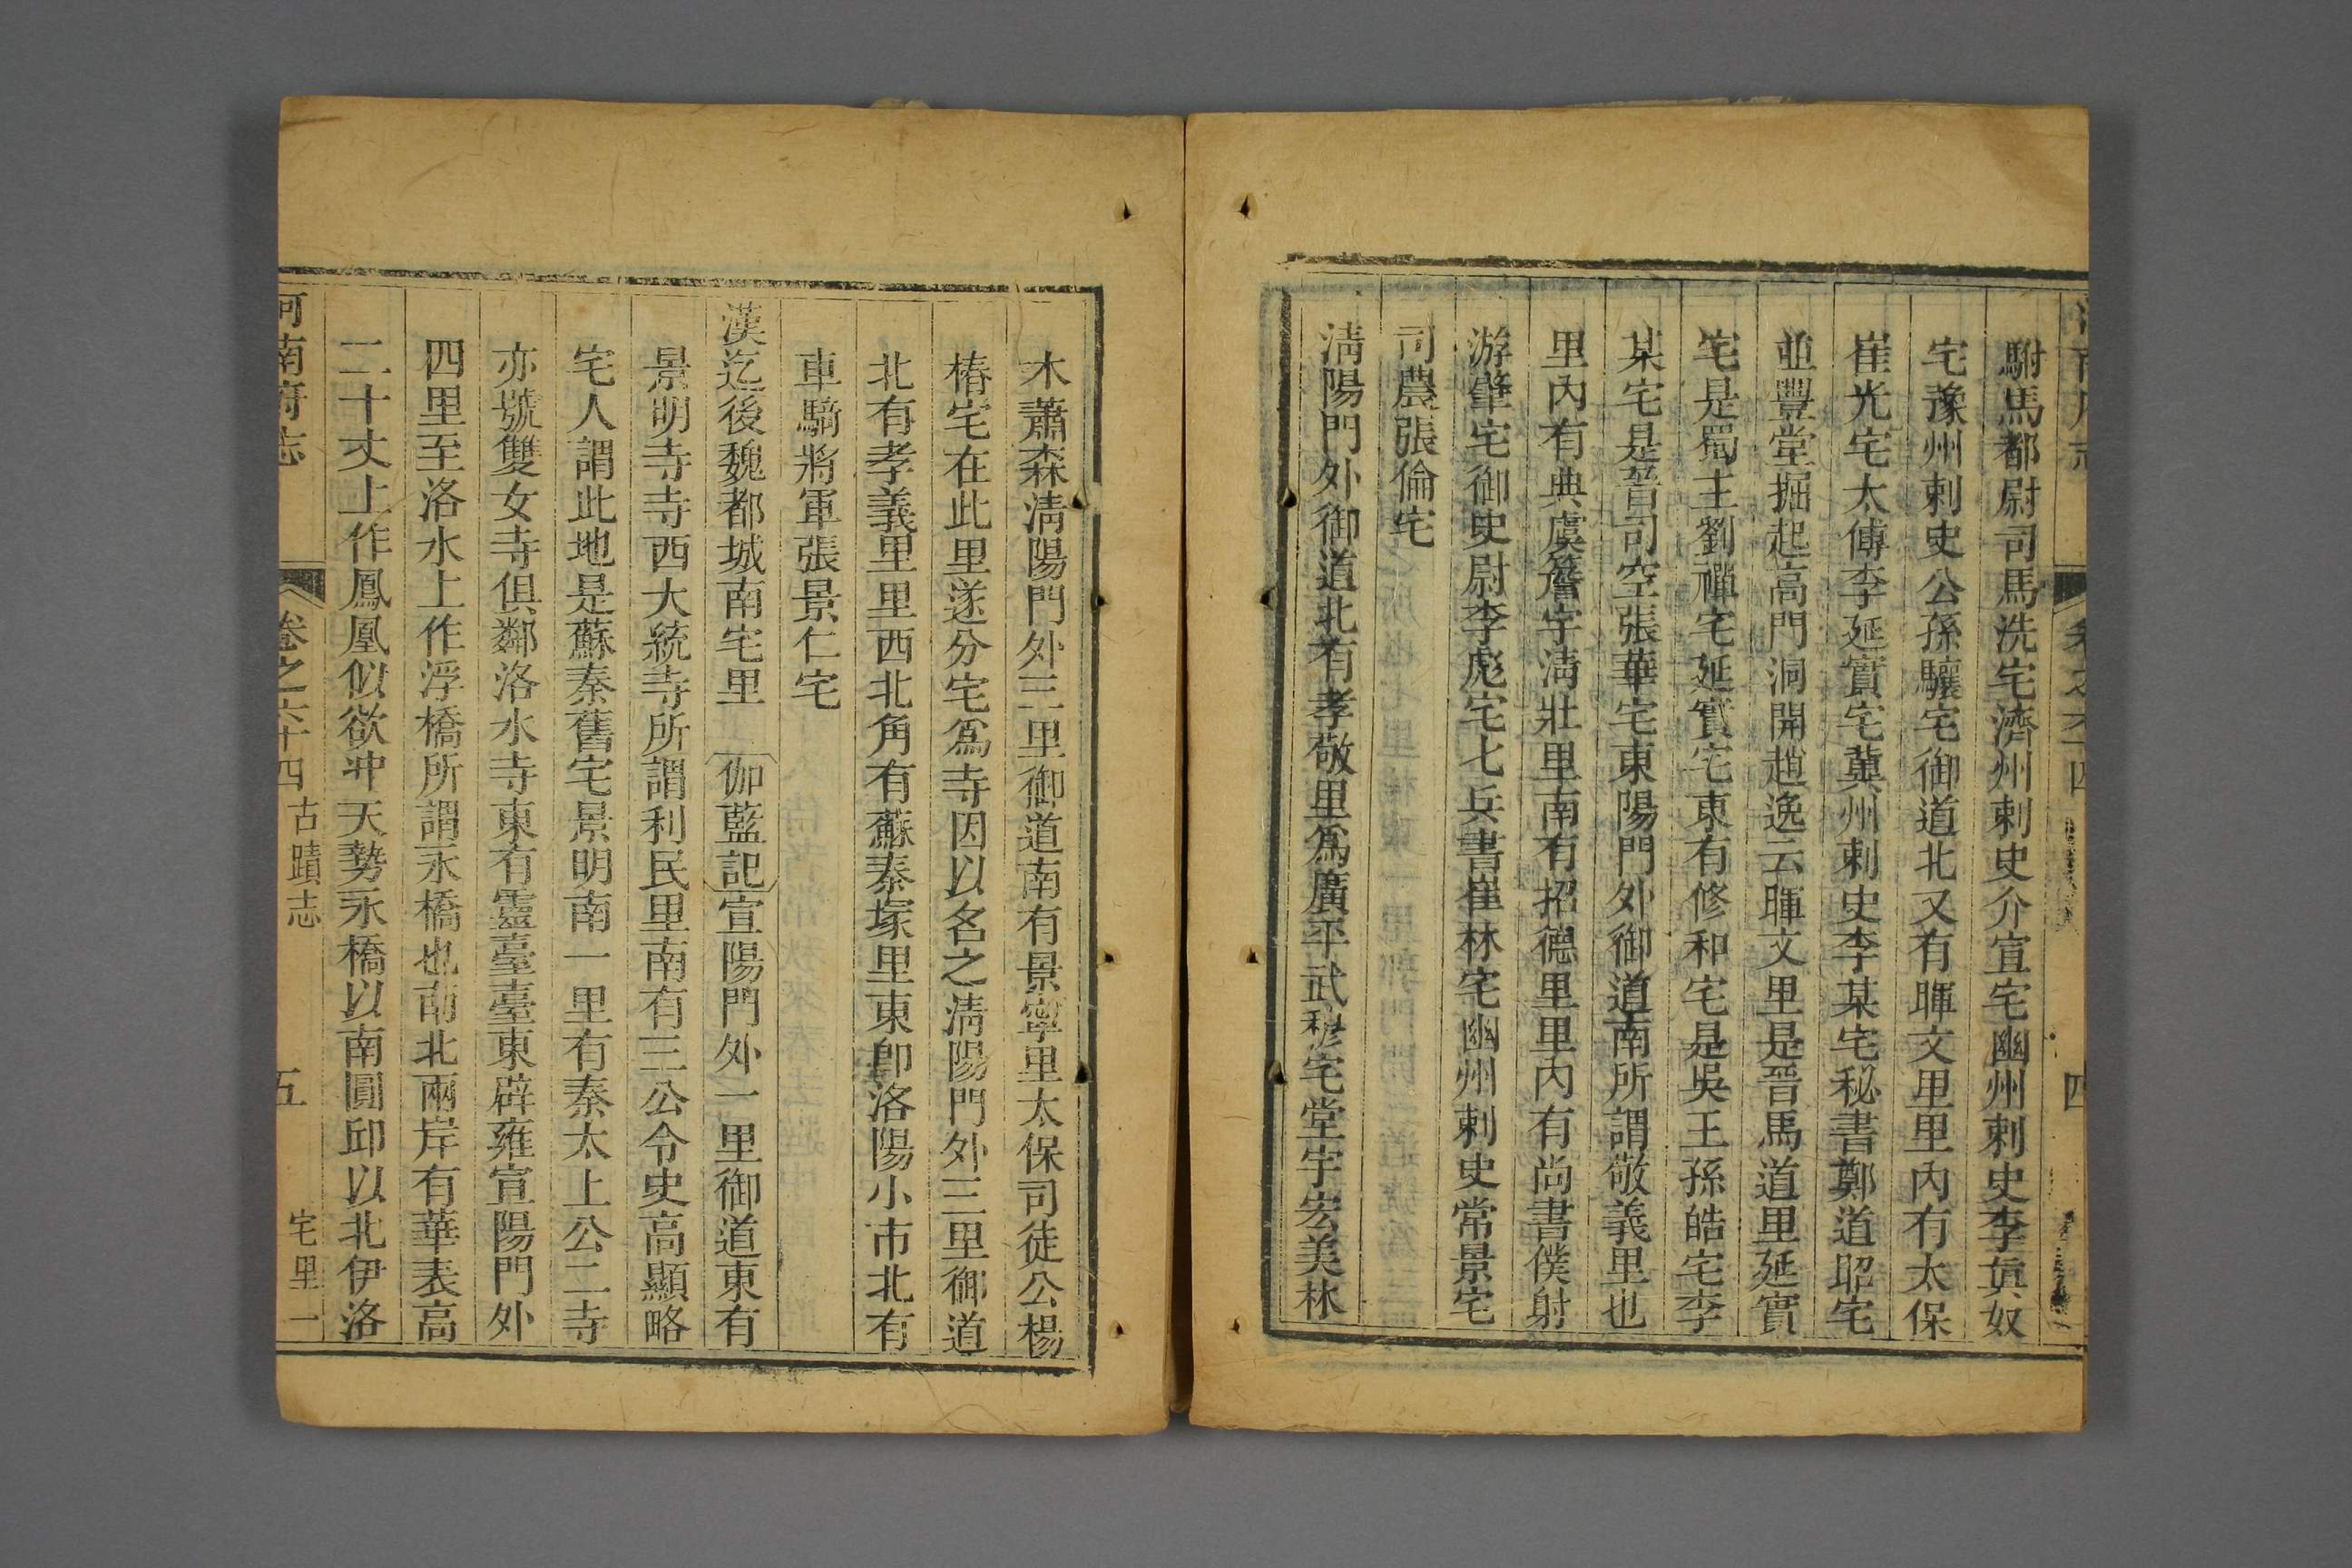 駙馬都尉司馬洗宅濟州刺史介宣宅幽州刺史李眞奴
宅豫州刺史公孫驤宅御道北又有暉文里里內有太保
崔光宅太傅李延實宅冀州刺史李某宅秘書鄭道昭宅
並豐堂掘起高門洞開趙逸云暉文里是晉馬道里延實
宅是蜀主劉禪宅延實宅東有修和宅是吳王孫皓宅李
某宅是晉司空張華宅東陽門外御道南所謂敬義里也
里內有典虞簷宇淸壯里南有招德里里內有尚書僕射
游肇宅御史尉李彪宅七兵書崔林宅幽州刺史常景宅
司農張倫宅
淸陽門外御道北有孝敬里爲廣平武穆宅堂宇宏美林
木蕭森淸陽門外三里御道南有景寧里太保司徒公楊
椿宅在此里遂分宅爲寺因以名之淸陽門外三里御道
北有孝義里里西北角有蘇秦塚里東卽洛陽小市北有
車騎將軍張景仁宅
漢迄後魏都城南宅里 伽藍記宣陽門外一里御道東有
景明寺寺西大統寺所謂利民里南有三公令史高顯略
宅人謂此地是蘇秦舊宅景明南一里有秦太上公二寺
亦號雙女寺俱鄰洛水寺東有靈臺臺東辟雍宣陽門外
四里至洛水上作浮橋所謂永橋也南北兩岸有華表高
二十丈上作鳳凰似欲冲天勢永橋以南圓邱以北伊洛
河南府志 卷之六十四 古蹟志 五 宅里一